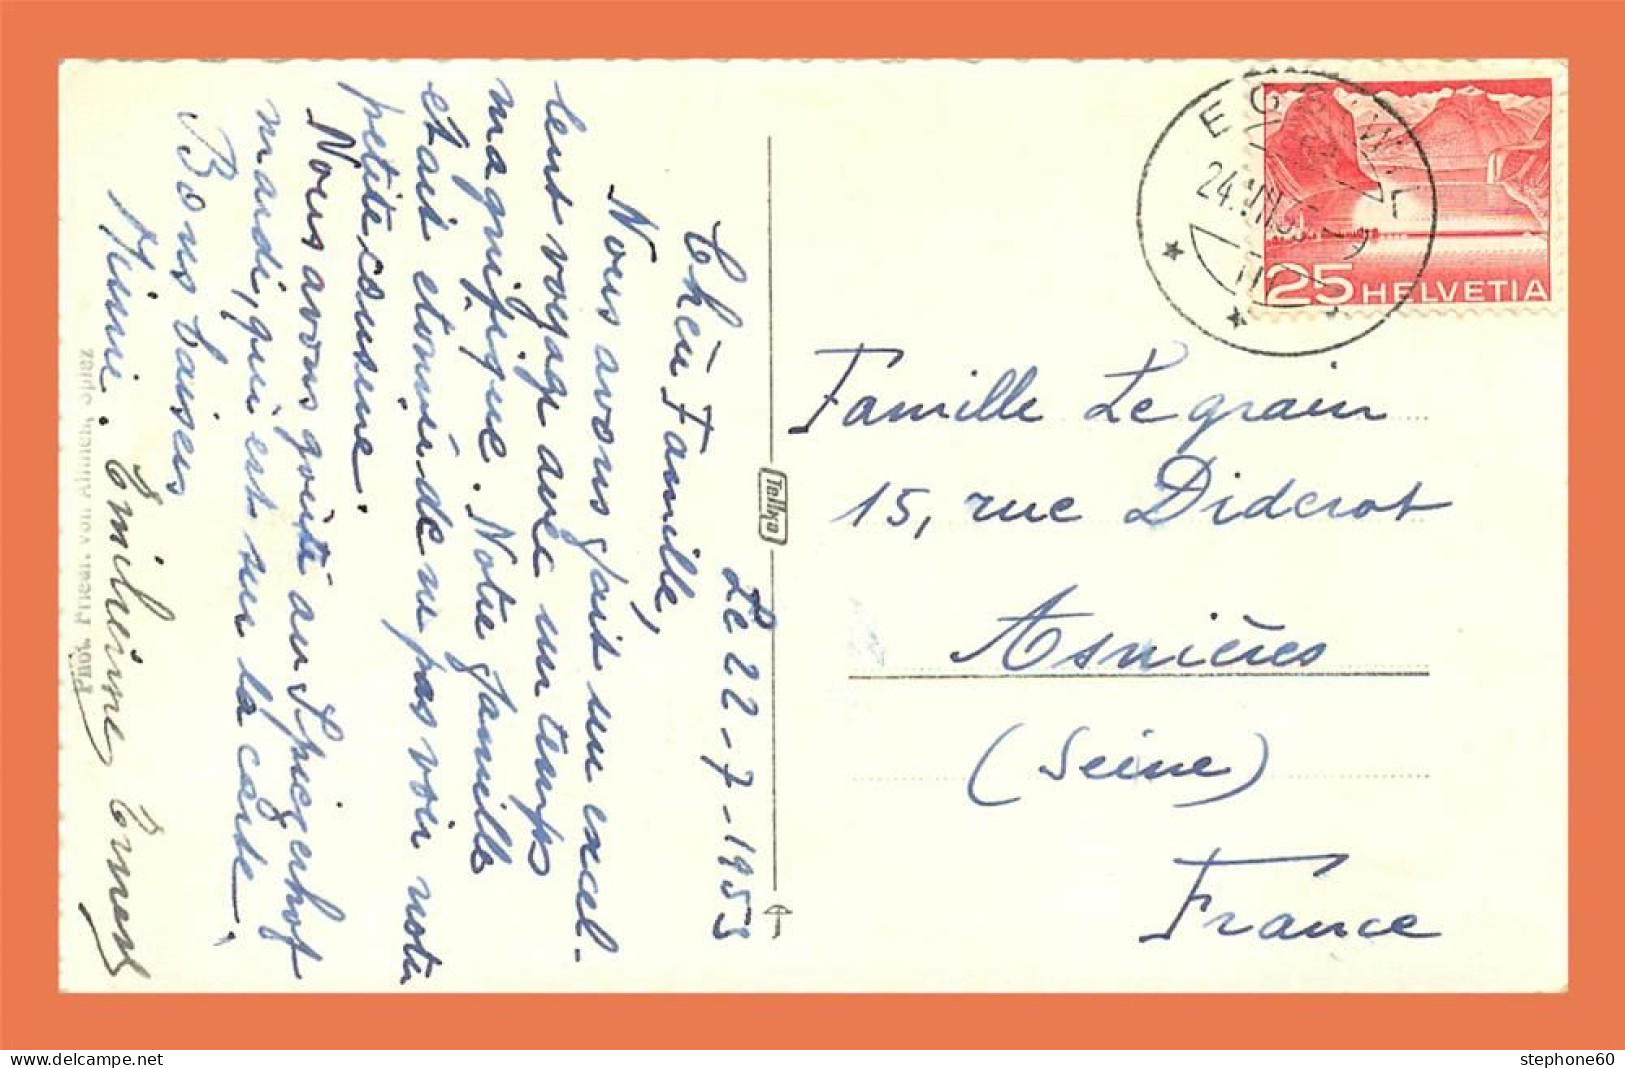 Le 22-7-1953
Chère Famille,
Nous avons fait un excel-
lent voyage avec un temps
magnifique. Notre famille
était étonnée de ne pas voir notre
petite cousine.
Nous avons goûté au Spiezerhof
mardi, qui est sur la carte.
Bons baisers
Mimi. Emilienne Ernest
Phot. Friedr. von Allmen, Spiez
Tellko
EGGIWIL
24.VII.53
25 HELVETIA
Famille Legrain
15, rue Diderot
Asnières
(Seine)
France
stephone60